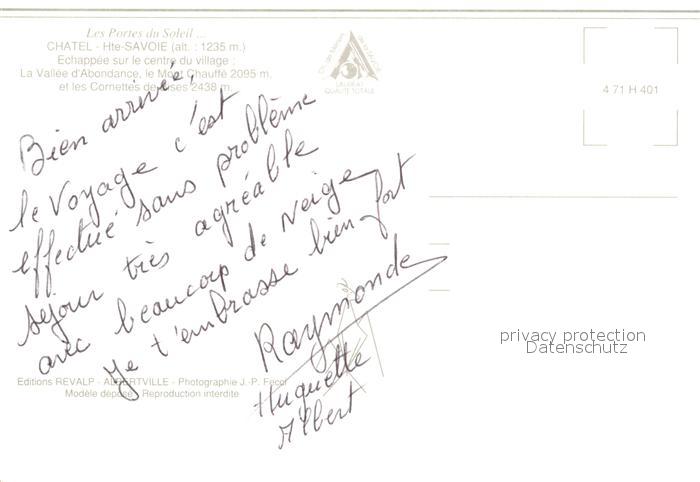 Les Portes du Soleil ...
CHATEL - Hte-SAVOIE (alt. : 1235 m.)
Echappée sur le centre du village :
La Vallée d'Abondance, le Mont Chauffé 2095 m.
et les Cornettes de Bises 2438 m.
LAURÉAT
QUALITÉ TOTALE
4 71 H 401
Bien arrivée,
le voyage c'est
effectué sans problème
séjour très agréable
avec beaucoup de neige
je t'embrasse bien fort
Raymonde
Huguette
Albert
privacy protection
Datenschutz
Editions REVALP - ALBERTVILLE - Photographie J.-P.
Modèle déposé - Reproduction interdite